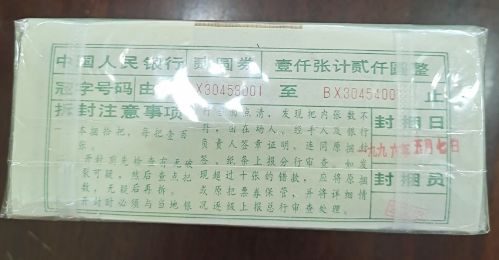 中国人民银行 贰圆券 壹仟张计贰仟圆整
冠字号码由 X30453001 至 BX3045400 止
拆封注意事项
本捆拾把，每把壹百
张。
开封前先检查有无破
张可疑，然后查点把
数，无疑后再拆
开封时必须与当地银
的点清，发现把内张数不
出在场人，经手人及银行
负责人签章证明，连同原捆封
签、纸条上报分行审查。如发
现超过十张的错款，应将原捆
或原把票券保管，并将详细情
况逐级上报总行审查处理。
封捆日
九九六年五月七日
封捆员